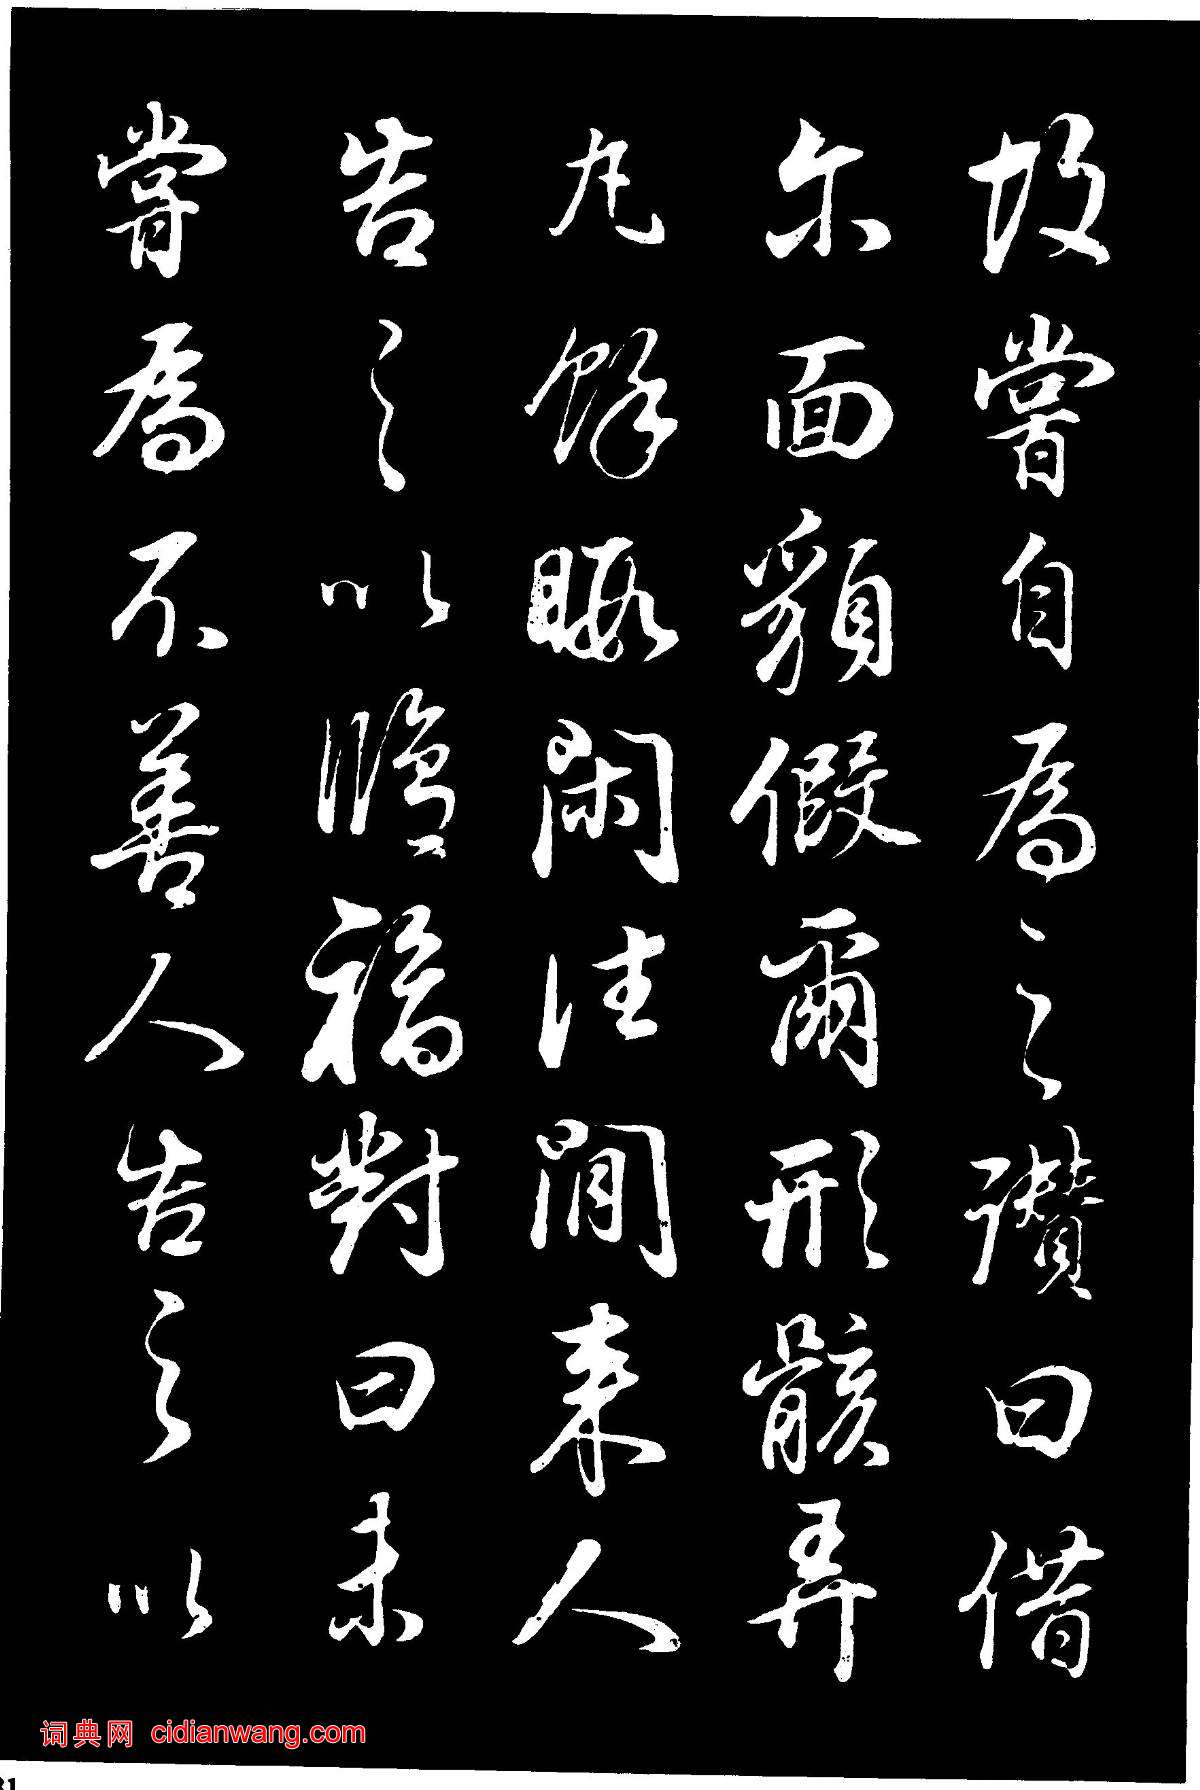 故嘗自為之讚曰借
尓面䫉假爾形骸弄
丸餘暇閑往閒來人
告之以脩福對曰未
嘗為不善人告之以
词典网 cidianwang.com